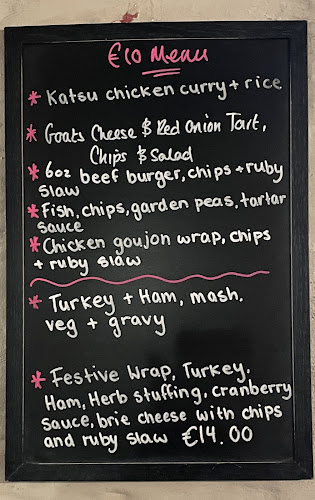 €10 Menu
* Katsu chicken curry + rice
* Goats Cheese & Red Onion Tart,
Chips & Salad
* 6oz beef burger, chips + ruby
slaw
* Fish, chips, garden peas, tartar
sauce
* Chicken goujon wrap, chips
+ ruby slaw
* Turkey + Ham, mash,
veg + gravy
* Festive Wrap, Turkey,
Ham, Herb stuffing, cranberry
sauce, brie cheese with chips
and ruby slaw €14.00